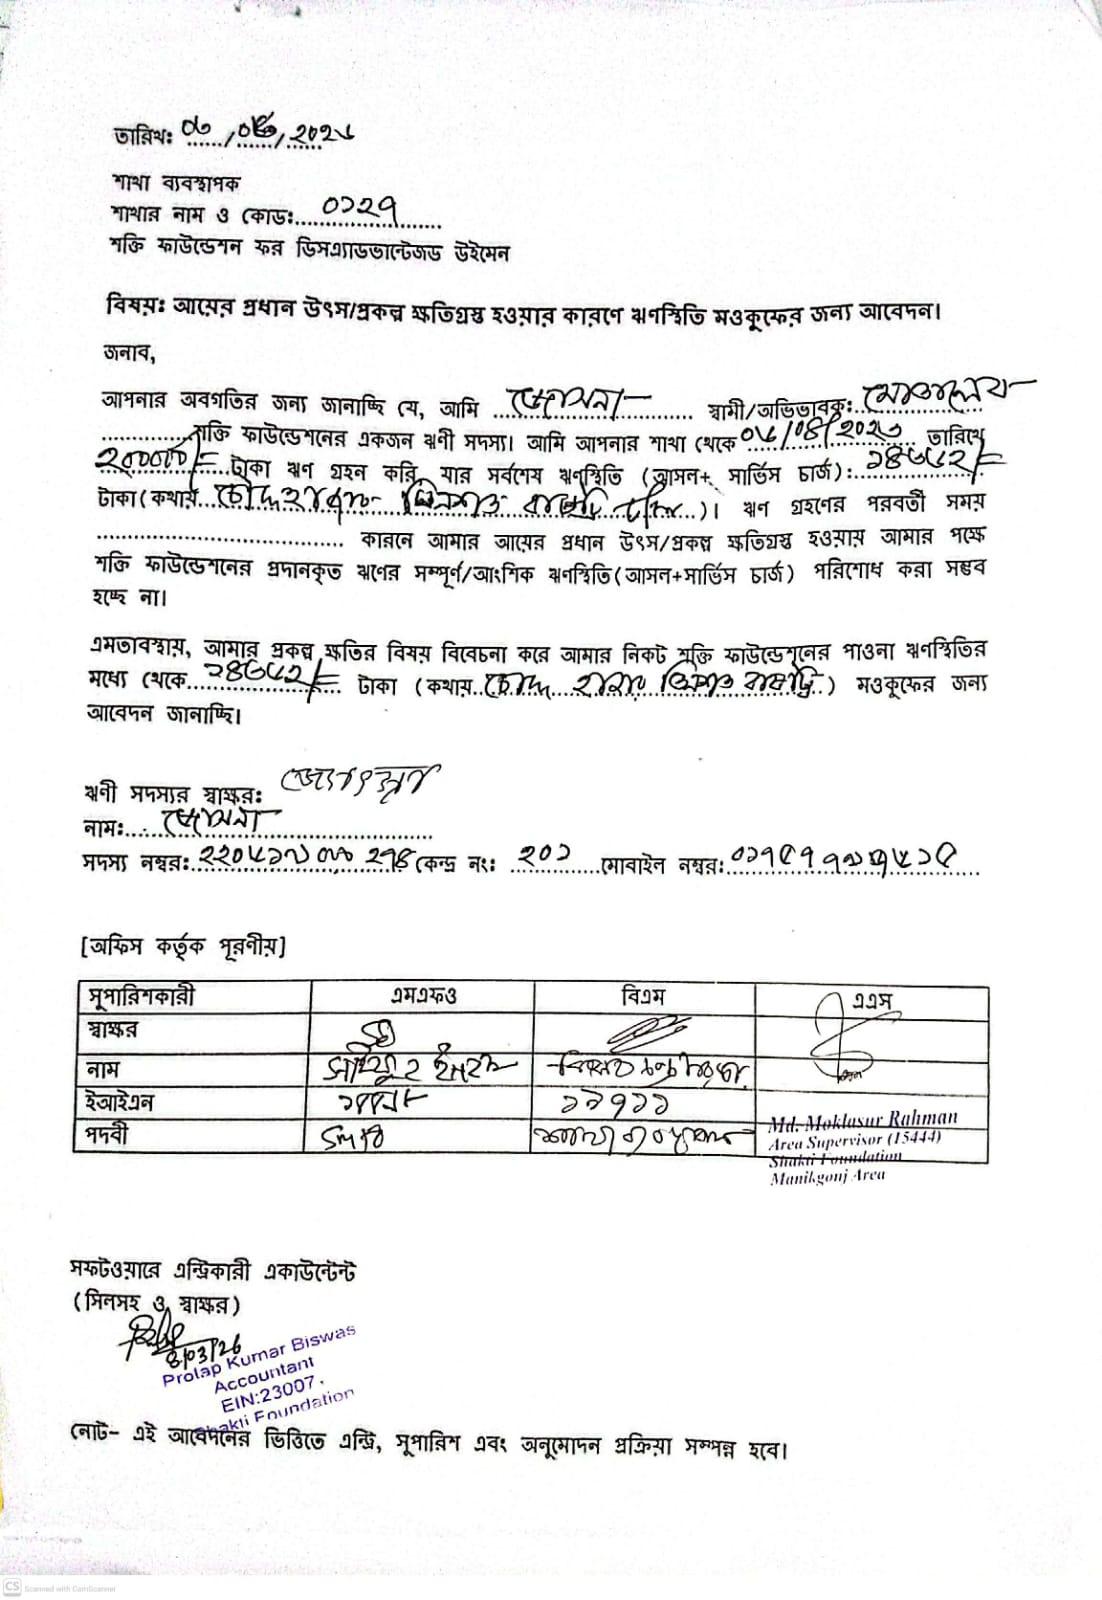 তারিখঃ
শাখা ব্যবস্থাপক
শাখার নাম ও কোডঃ ০১২৭
শক্তি ফাউন্ডেশন ফর ডিসএ্যাডভান্টেজড উইমেন
বিষয়ঃ আয়ের প্রধান উৎস/প্রকল্প ক্ষতিগ্রস্ত হওয়ার কারণে ঋণস্থিতি মওকুফের জন্য আবেদন।
জনাব,
আপনার অবগতির জন্য জানাচ্ছি যে, আমি জোসনা স্বামী/অভিভাবকঃ
শক্তি ফাউন্ডেশনের একজন ঋণী সদস্য। আমি আপনার শাখা থেকে তারিখে
টাকা ঋণ গ্রহন করি, যার সর্বশেষ ঋণস্থিতি (আসল+ সার্ভিস চার্জ): ১৪৩৬২/=
টাকা (কথায় চৌদ্দ হাজার তিনশত বাষট্টি টাকা)। ঋণ গ্রহণের পরবর্তী সময়
কারনে আমার আয়ের প্রধান উৎস/প্রকল্প ক্ষতিগ্রস্ত হওয়ায় আমার পক্ষে
শক্তি ফাউন্ডেশনের প্রদানকৃত ঋণের সম্পূর্ণ/আংশিক ঋণস্থিতি(আসল+সার্ভিস চার্জ) পরিশোধ করা সম্ভব
হচ্ছে না।
এমতাবস্থায়, আমার প্রকল্প ক্ষতির বিষয় বিবেচনা করে আমার নিকট শক্তি ফাউন্ডেশনের পাওনা ঋণস্থিতির
মধ্যে থেকে ১৪৩৬২/= টাকা (কথায় চৌদ্দ হাজার তিনশত বাষট্টি) মওকুফের জন্য
আবেদন জানাচ্ছি।
ঋণী সদস্যর স্বাক্ষরঃ জোৎস্না
নামঃ জোসনা
সদস্য নম্বরঃ কেন্দ্র নং: ২০১ মোবাইল নম্বরঃ
[অফিস কর্তৃক পূরণীয়]
সুপারিশকারী এমএফও বিএম এএস
স্বাক্ষর
নাম
ইআইএন ১৯৭১১
পদবী
Md. Moklasur Rahman
Area Supervisor (15444)
Shakti Foundation
Manikgonj Area
সফটওয়ারে এন্ট্রিকারী একাউন্টেন্ট
(সিলসহ ও স্বাক্ষর)
8/03/26
Prolap Kumar Biswas
Accountant
EIN:23007,
Shakti Foundation
নোট- এই আবেদনের ভিত্তিতে এন্ট্রি, সুপারিশ এবং অনুমোদন প্রক্রিয়া সম্পন্ন হবে।
CS Scanned with CamScanner